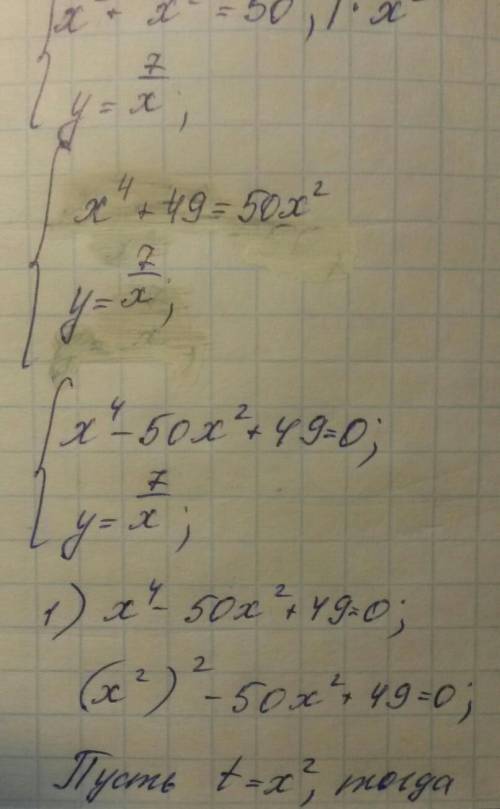 = 50, | · x²
y = 7/x ;
x⁴ + 49 = 50x²
y = 7/x ;
x⁴ - 50x² + 49 = 0;
y = 7/x ;
1) x⁴ - 50x² + 49 = 0;
(x²)² - 50x² + 49 = 0;
Пусть t = x², тогда